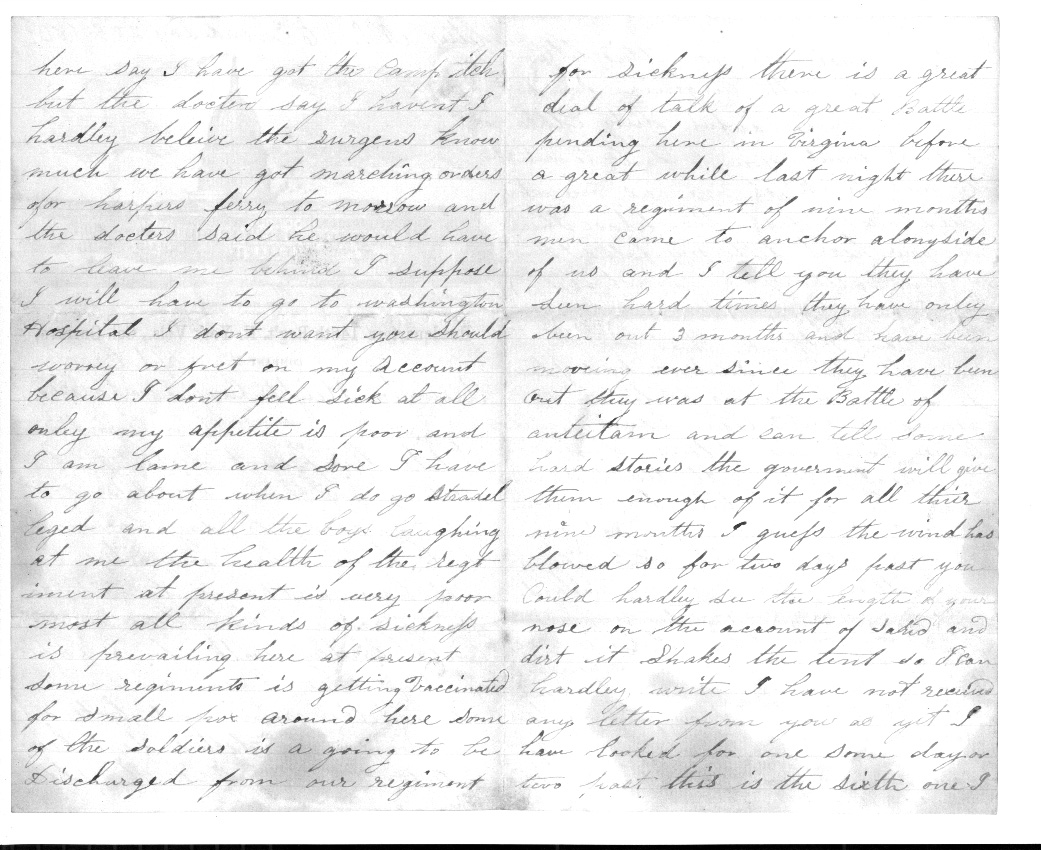 here say I have got the Camp itch
but the docters say I havent I
hardley beleive the surgens know
much we have got marching orders
for harpers ferry to morrow and
the docters said he would have
to leave me behind I suppose
I will have to go to washington
Hospital I dont want you should
worrey or fret on my account
because I dont feel sick at all
onley my appetite is poor and
I am lame and sore I have
to go about when I do go stradel
leged and all the boys laughing
at me the health of the regt
iment at present is very poor
most all kinds of sickness
is prevailing here at present
some regiments is getting vaccinated
for small pox around here some
of the soldiers is a going to be
Discharged from our regiment
for sickness there is a great
dial of talk of a great Battle
pending here in Virgina before
a great while last night there
was a regiment of nine months
men came to anchor alongside
of us and I tell you they have
seen hard times they have onley
been out 3 months and have been
moveing ever since they have been
out they was at the Battle of
anteitam and can tell some
hard stories the goverment will give
them enough of it for all thier
nine months I guess the wind has
blowed so for two days past you
Could hardley see the length of your
nose on the account of sand and
dirt it Shakes the tent so I can
hardley write I have not received
any letter from you as yet I
have looked for one some day or
two past this is the sixth one I